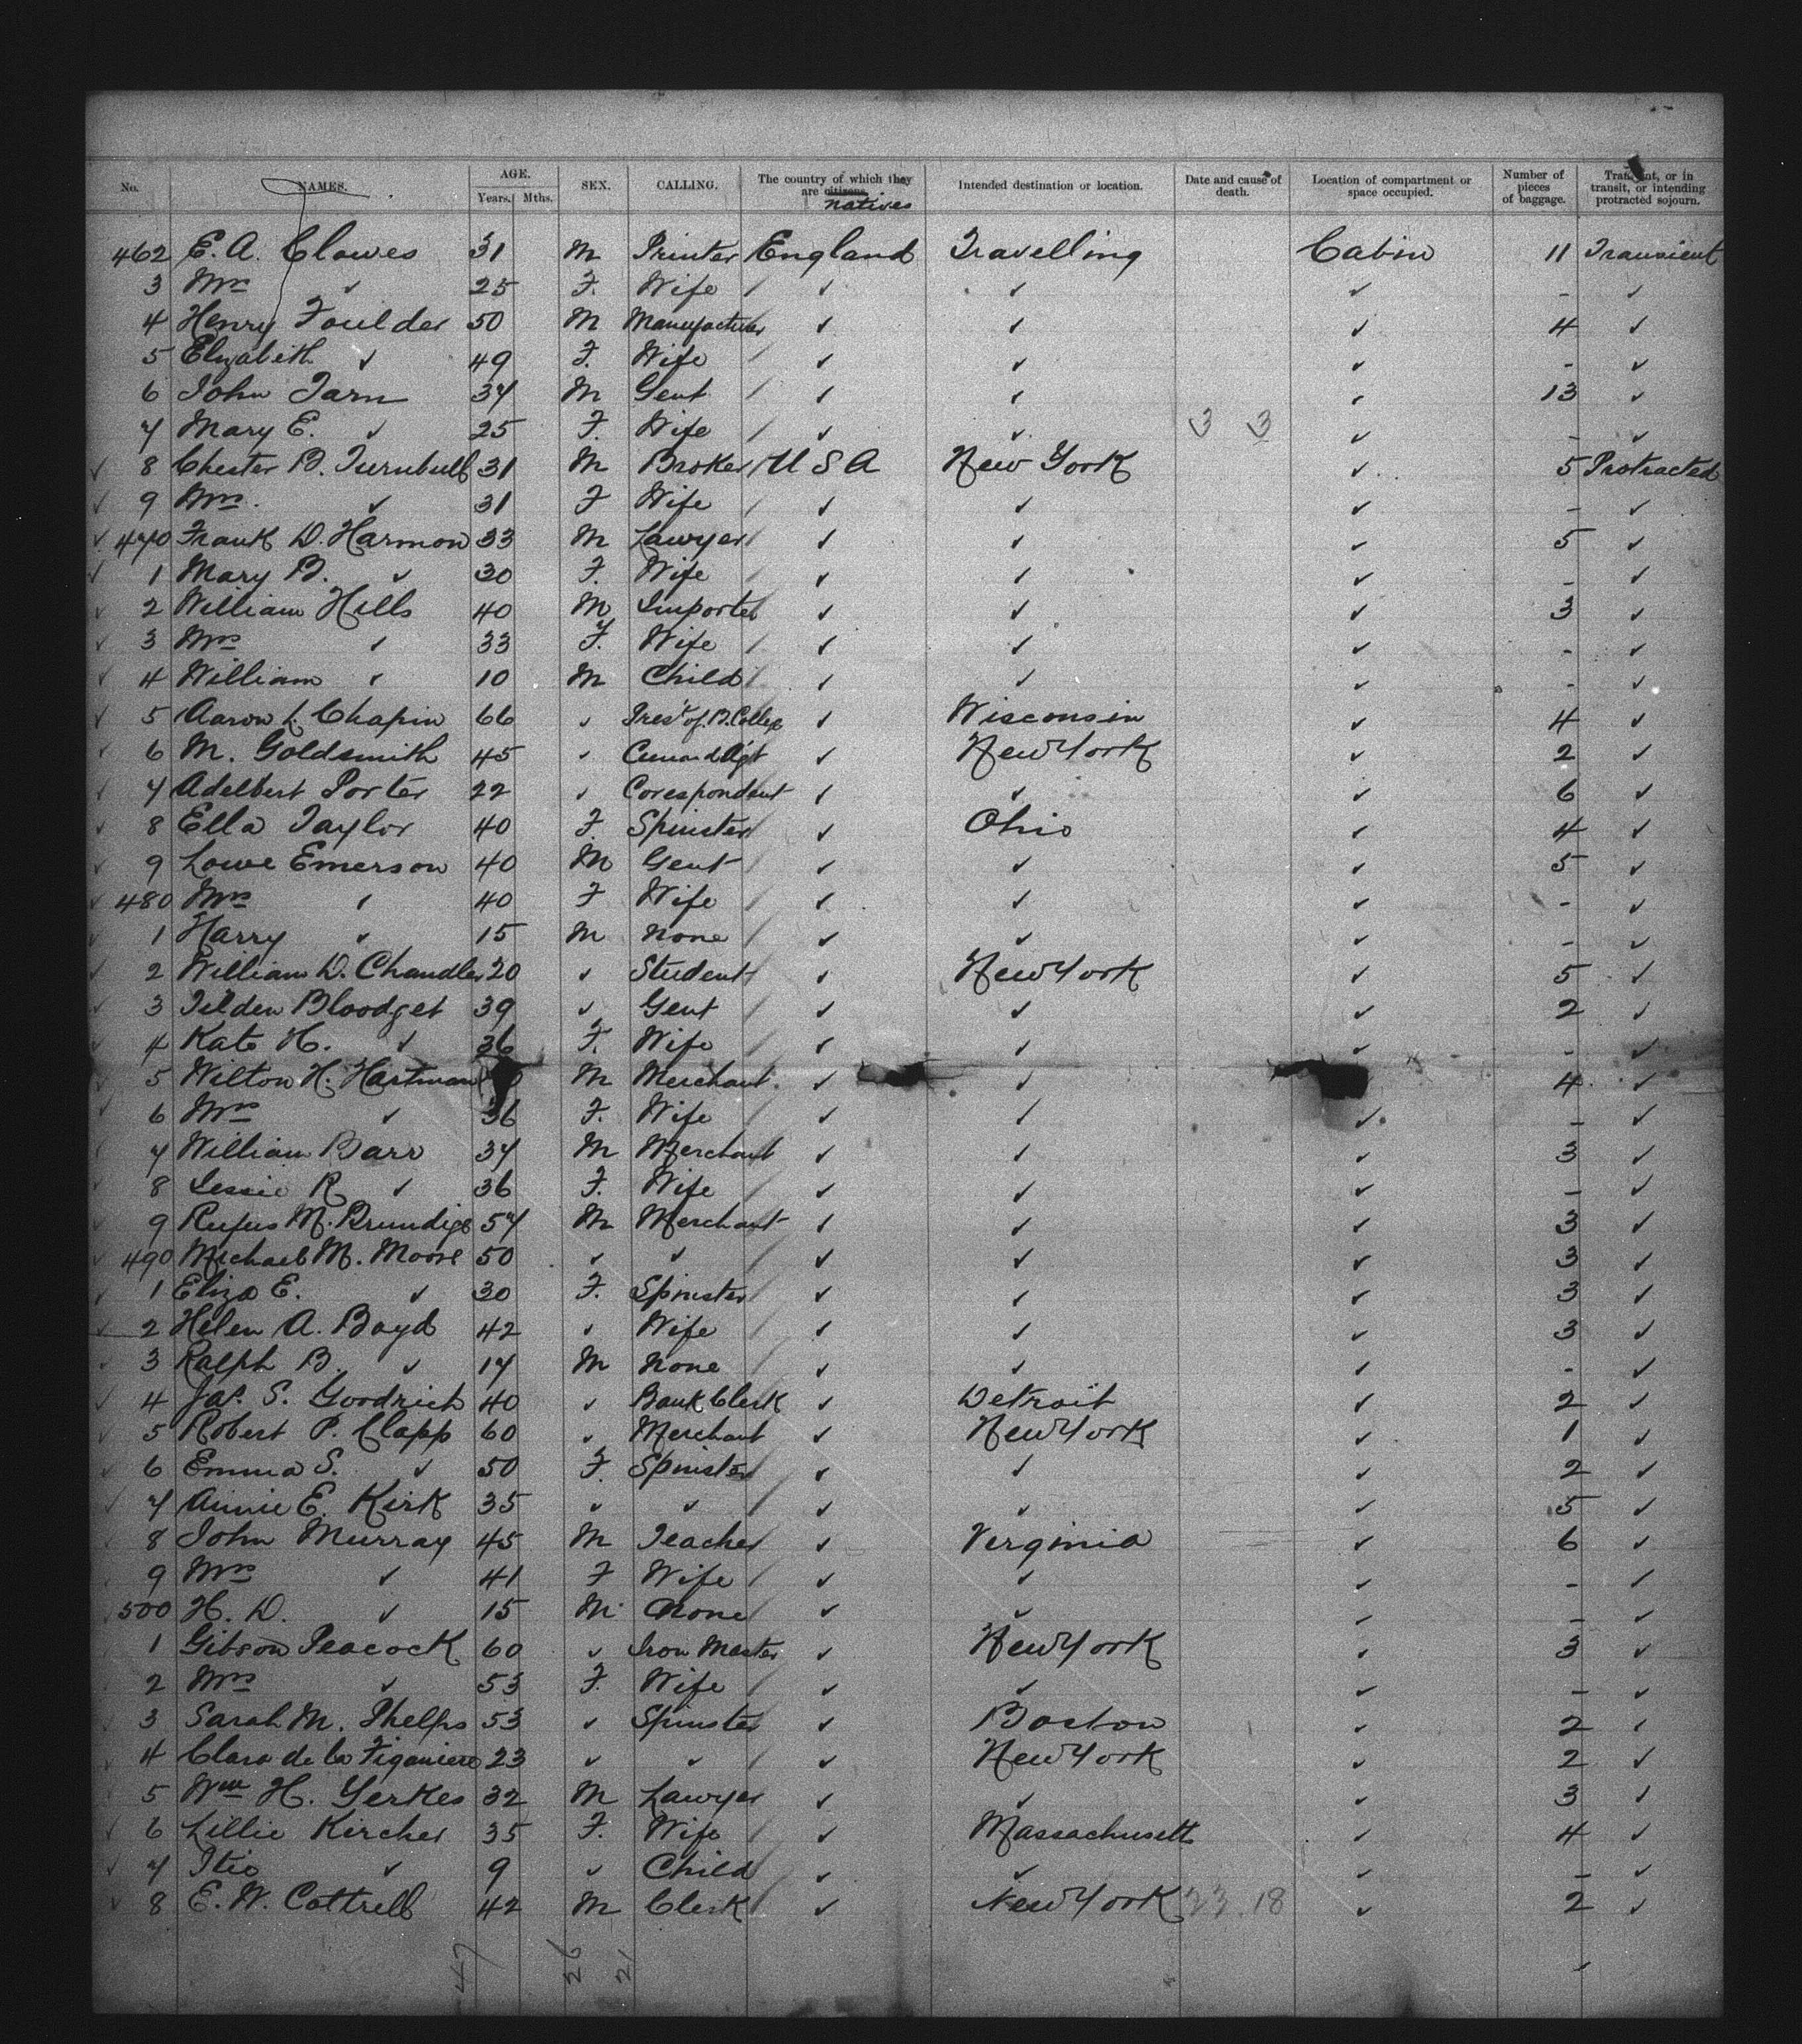 No. NAMES. AGE. Years. Mths. SEX. CALLING. The country of which they are citizens natives Intended destination or location. Date and cause of death. Location of compartment or space occupied. Number of pieces of baggage. Transient, or in transit, or intending protracted sojourn.
462 E. A. Clowes 31 M Printer England Travelling Cabin 11 Transient
3 Mrs ✓ 25 F. Wife ✓ ✓ ✓ - ✓
4 Henry Foulder 50 M Manufacturer ✓ ✓ ✓ 4 ✓
5 Elizabeth ✓ 49 F. Wife ✓ ✓ ✓ - ✓
6 John Tarn 34 M Gent ✓ ✓ ✓ 13 ✓
7 Mary E. ✓ 25 F. Wife ✓ ✓ 3 3 ✓ - ✓
✓ 8 Chester B. Turnbull 31 M Broker U S A New York ✓ 5 Protracted
✓ 9 Mrs. ✓ 31 F Wife ✓ ✓ ✓ - ✓
✓ 470 Frank D. Harmon 33 M Lawyer ✓ ✓ ✓ 5 ✓
✓ 1 Mary B. ✓ 30 F. Wife ✓ ✓ ✓ - ✓
✓ 2 William Hills 40 M Importer ✓ ✓ ✓ 3 ✓
✓ 3 Mrs ✓ 33 F. Wife ✓ ✓ ✓ - ✓
✓ 4 William ✓ 10 M Child ✓ ✓ ✓ - ✓
✓ 5 Aaron L. Chapin 66 ✓ Prest of B. College ✓ Wisconsin ✓ 4 ✓
✓ 6 M. Goldsmith 45 ✓ Cunard Agt ✓ New York ✓ 2 ✓
✓ 7 Adelbert Porter 22 ✓ Corespondent ✓ ✓ ✓ 6 ✓
✓ 8 Ella Taylor 40 F. Spinster ✓ Ohio ✓ 4 ✓
✓ 9 Lowe Emerson 40 M Gent ✓ ✓ ✓ 5 ✓
✓ 480 Mrs ✓ 40 F Wife ✓ ✓ ✓ - ✓
✓ 1 Harry ✓ 15 M none ✓ ✓ ✓ - ✓
✓ 2 William D. Chandler 20 ✓ Student ✓ New York ✓ 5 ✓
✓ 3 Tilden Bloodget 39 ✓ Gent ✓ ✓ ✓ 2 ✓
✓ 4 Kate H. ✓ 36 F. Wife ✓ ✓ ✓ - ✓
✓ 5 Wilton H. Hartman M Merchant ✓ ✓ 4 ✓
✓ 6 Mrs ✓ 36 F. Wife ✓ ✓ ✓ - ✓
✓ 7 William Barr 34 M Merchant ✓ ✓ ✓ 3 ✓
✓ 8 Lessie R ✓ 36 F. Wife ✓ ✓ ✓ - ✓
✓ 9 Rufus M. Brundige 57 M Merchant ✓ ✓ ✓ 3 ✓
✓ 490 Michael M. Moore 50 ✓ ✓ ✓ ✓ ✓ 3 ✓
✓ 1 Eliza E. ✓ 30 F. Spinster ✓ ✓ ✓ 3 ✓
✓ 2 Helen A. Boyd 42 ✓ Wife ✓ ✓ ✓ 3 ✓
✓ 3 Ralph B. ✓ 17 M none ✓ ✓ ✓ - ✓
✓ 4 Jas. S. Goodrich 40 ✓ Bank Clerk ✓ Detroit ✓ 2 ✓
✓ 5 Robert P. Clapp 60 ✓ Merchant ✓ New York ✓ 1 ✓
✓ 6 Emma S. ✓ 50 F. Spinster ✓ ✓ ✓ 2 ✓
✓ 7 Annie E. Kirk 35 ✓ ✓ ✓ ✓ ✓ 5 ✓
8 John Murray 45 M Teacher ✓ Virginia ✓ 6 ✓
9 Mrs ✓ 41 F Wife ✓ ✓ ✓ - ✓
500 H. D. ✓ 15 M none ✓ ✓ ✓ - ✓
1 Gibson Peacock 60 ✓ Iron Master ✓ New York ✓ 3 ✓
2 Mrs ✓ 53 F. Wife ✓ ✓ ✓ - ✓
3 Sarah M. Phelps 53 ✓ Spinster ✓ Boston ✓ 2 ✓
4 Clara de la Figaniere 23 ✓ ✓ ✓ New York ✓ 2 ✓
5 Wm H. Yerkes 32 M Lawyer ✓ ✓ ✓ 3 ✓
✓ 6 Lillie Kircher 35 F. Wife ✓ Massachusetts ✓ 4 ✓
✓ 7 Itie ✓ 9 ✓ Child ✓ ✓ ✓ - ✓
✓ 8 E. W. Cottrell 42 M Clerk ✓ New York 23 18 ✓ 2 ✓
47 26 21